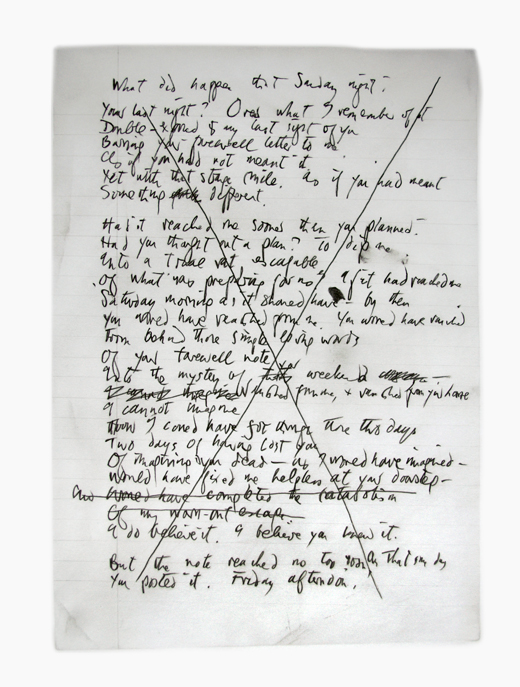 What did happen that Sunday night?
Your last night? Over what I remember of it
Double-exposed my last sight of you
Burning your farewell letter to me
As if you had not meant it
Yet with that strange smile. As if you had meant
Something different.
Had it reached me sooner than you planned?
Had you thought out a plan? To
Into a
Of what was preparing for me? If it had reached me
Saturday morning as it should have — by then
you would have vanished
From behind those simple words
Of your farewell note
Into the mystery of weekend
from me, + vanished from you have
I cannot imagine
How I could have got through those two days
Two days of having lost you
Of imagining you dead — as I would have imagined —
would have fixed me helpless at your doorstep —
And have completed the catabolism
Of my worn-out escape
I do believe it. I believe you knew it.
But the note reached me too soon. On that same day
You posted it. Friday afternoon.